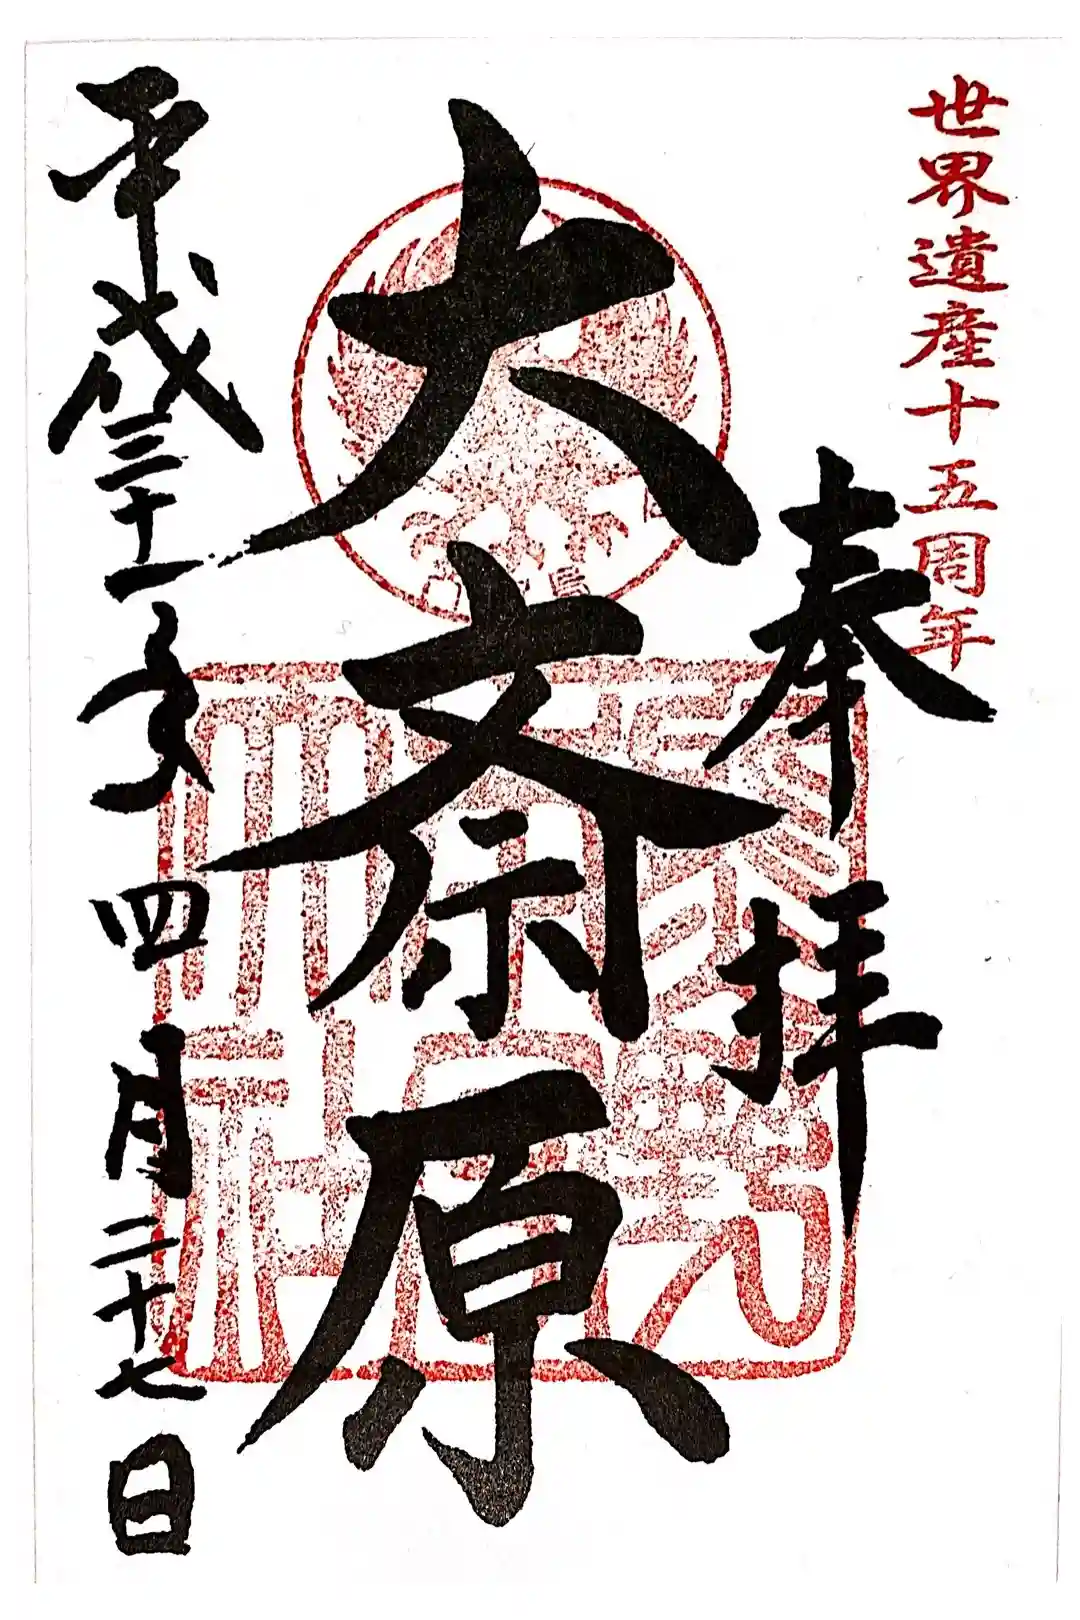 世界遺産十五周年
奉拝
大斎原
平成三十一年四月二十七日